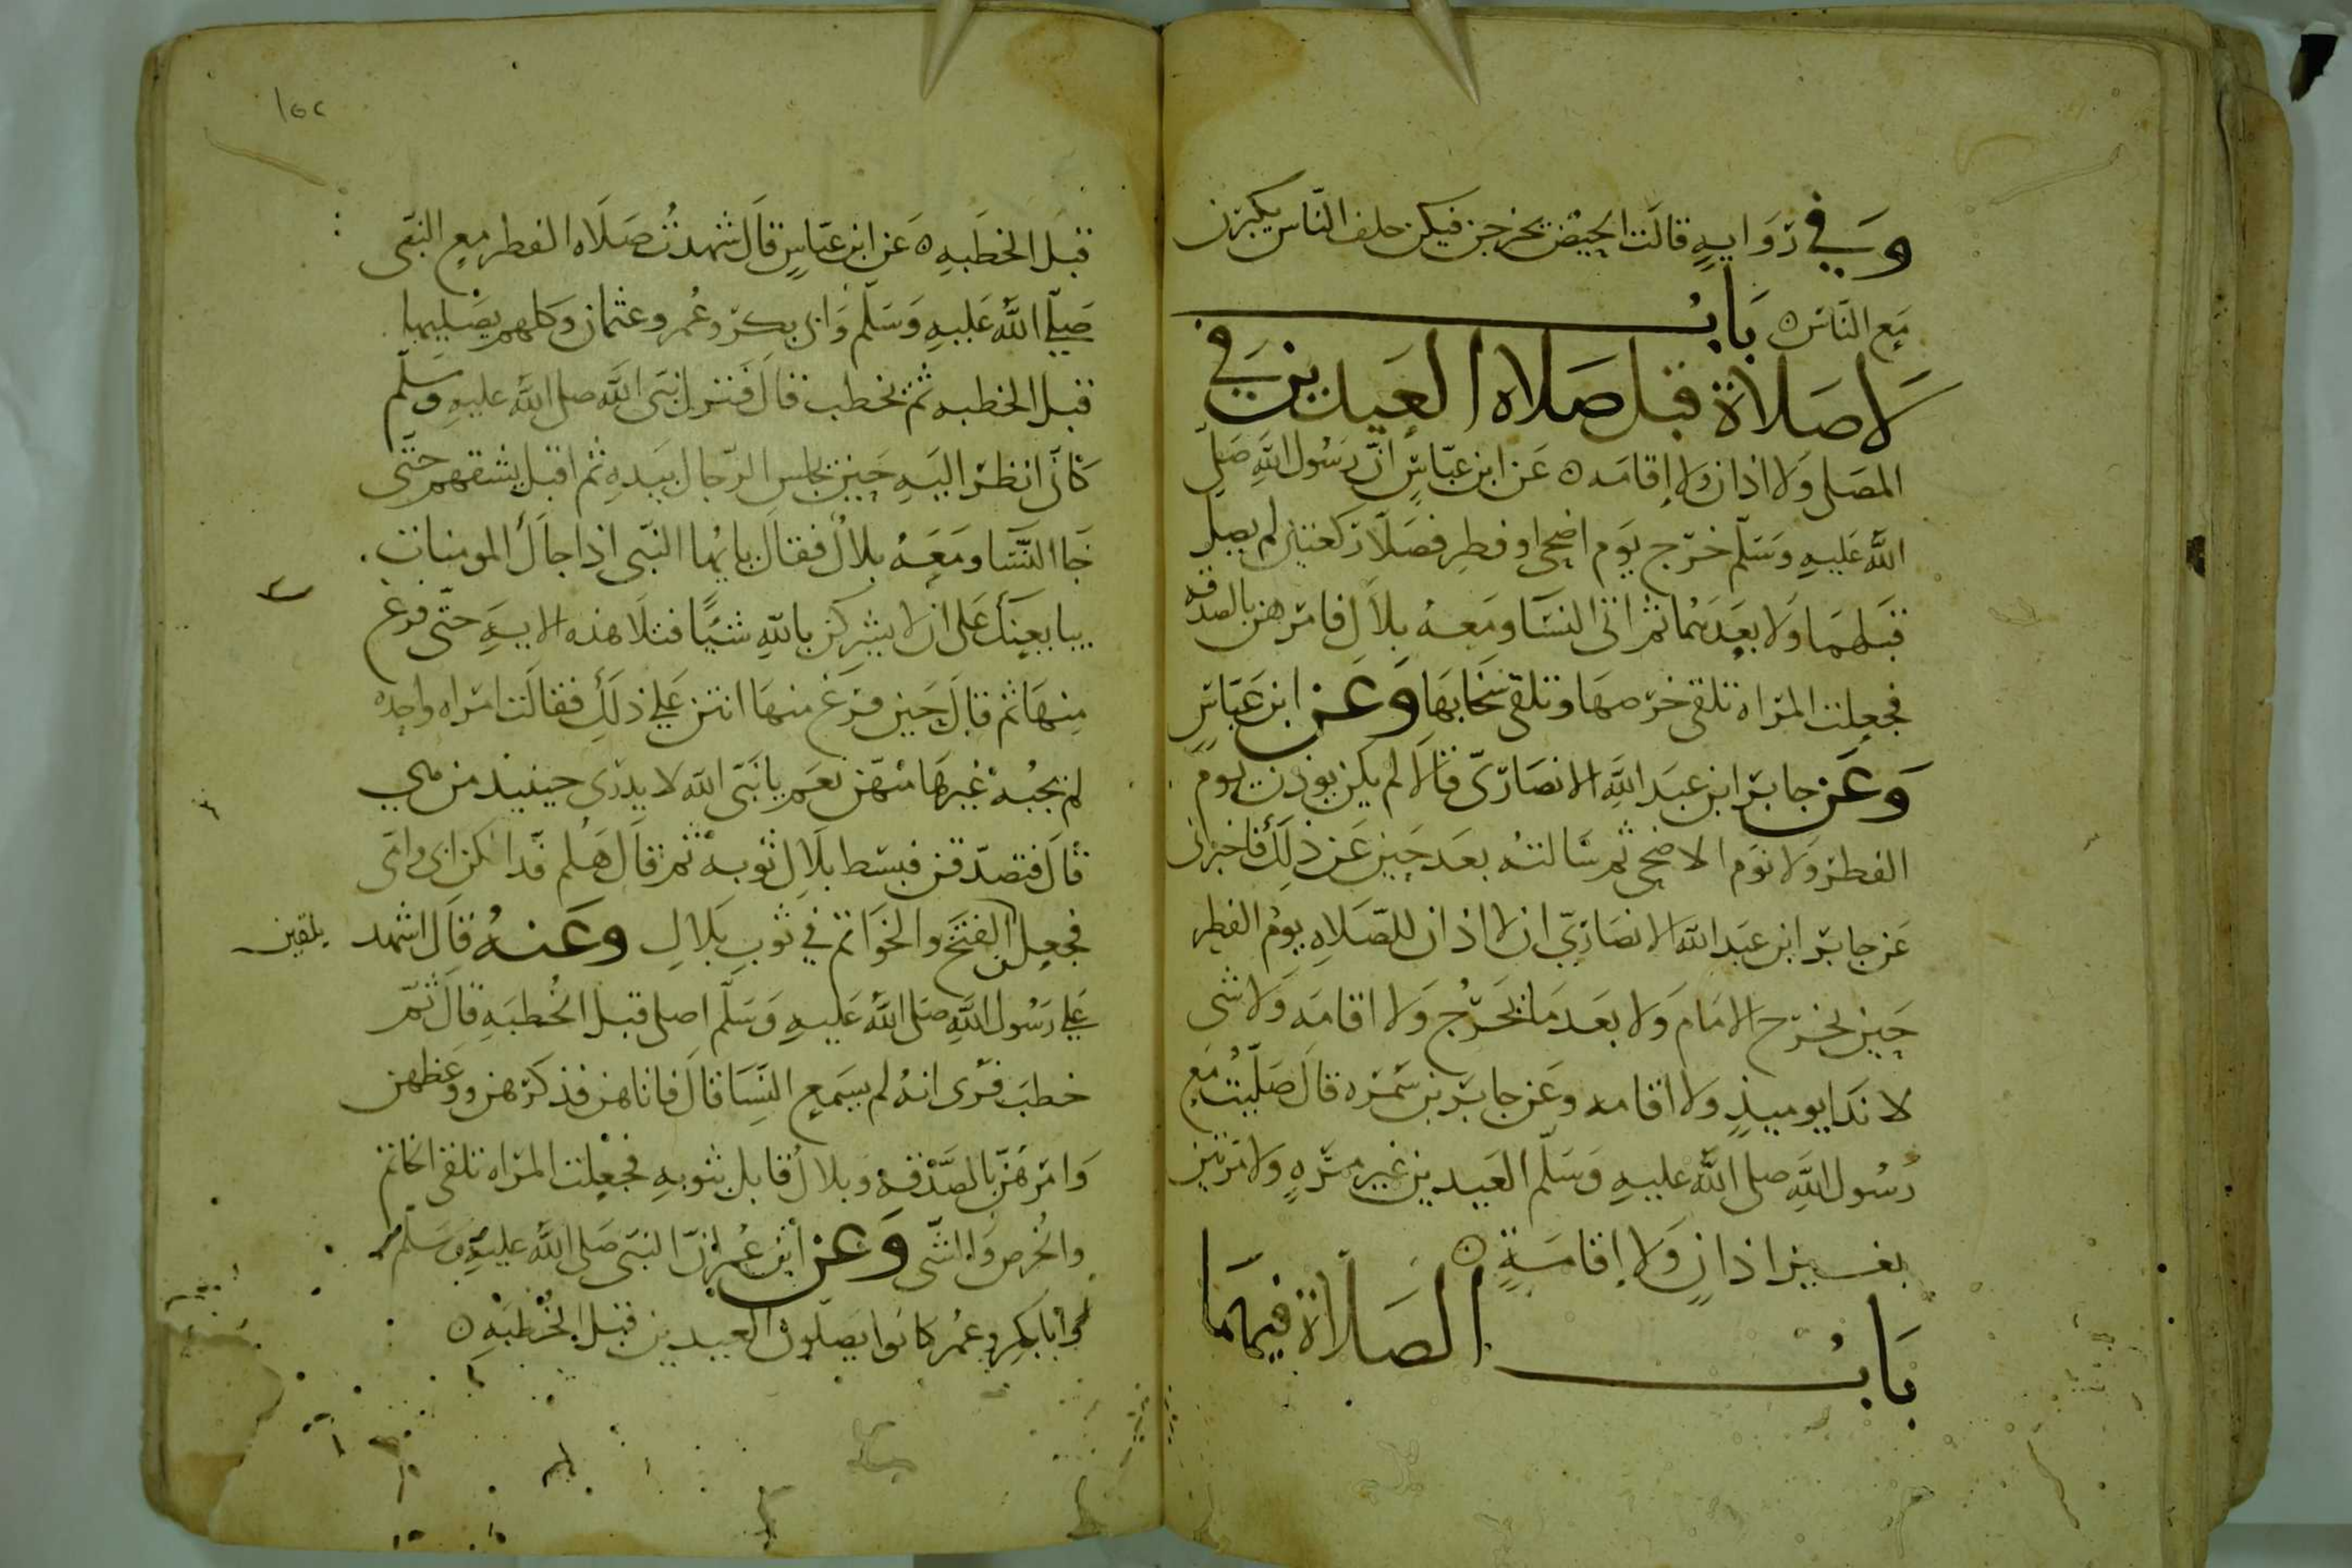 وَفي رَوَايةٍ قالَت الحيّض يخرجن فيكن خلف الناس يكبرن
مَع الناس ه بَابُ
لَا صَلاة قبل صَلاه العَيدين في
المصَلى وَلا اذان ولا إقامَه ه عَن ابن عبّاسٍ انّ رَسُول اللهِ صَلى
اللهُ عَليهِ وَسَلّم خرَج يَوم اضحى او فطرٍ فصَلّا ركعتين لم يصل
قبَلهمَا وَلا بعدَهُما ثم اتى النسَا ومَعهُ بلال فامرهن بالصدقه
فجعلت المراه تلقى خرصهَا وتلقى سخابهَا وَعَن ابن عَبّاسٍ
وَعَن جابر ابن عبَد اللهِ الانصَارىّ قالا لم يكن يوذن يوم
الفطر وَلا يوَم الاضحى ثم سَالتهُ بعَد حين عَن ذلِكَ فاخبرنى
عَن جابر ابن عبَد الله الانصَاريّ ان لا اذان للصّلاهِ يومُ الفطر
حِين يخرج الامَام وَلا بعَد مَا يَخرُج وَلا اقامَه وَلا شى
لا ندَا يوميذٍ وَلا اقامه وعَن جابر بن سَمره قالَ صَلّيتُ مَع
رسُول اللهِ صلى اللهُ عليهِ وَسَلّم العَيدين غير مرّهٍ وَلا مرتين
بغير اذانٍ وَلا إقامَةٍ ه
بَابُ الصَلاة فيهمَا
١٥٢
قبل الخطَبهِ ه عَن ابن عبّاسٍ قالَ شهدتُ صَلَاه الفطر مع النبَى
صَلى اللهُ عَليهِ وَسَلّم وَابى بكر وعُمر وعثمان وَكلهم يصَليها
قبل الخطبه ثم يخطب قالَ فَنزل نبَى اللهِ صلى اللهُ عليهِ وَسَلّم
كَانّى انظر اليَهِ حَين يجلس الرّجال بيَدهِ ثم اقبل يشقهم حتَّى
جَا النسَا ومَعَهُ بلالٌ فقال يايُها النبّى اذا جاكَ المومنات
يبايعنَكَ عَلى ان لا يشركن باللهِ شئًا فتلَا هَذه الايهَ حتّى فرغ
مِنهَا ثم قالَ حَين فرَغ منهَا انتن عَلى ذلكِ فقالَت امراه واحِده
لم يجبُهُ غيرهَا منهن نعَم يا نَبَى الله لا يدرى حينيذ من هي
قالَ فتصدّقن فبسَط بلالٌ ثوبهُ ثم قالَ هَلم فدا لكن ابى وامى
فجعلن الفتَخ والخوَاتم في ثوب بَلالٍ وعَنهُ قالَ اشهد
يلقين
عَلى رَسُول اللهِ صَلى اللهُ عَليهِ وَسَلّم اصلى قبل الخُطبَهِ قالَ ثمّ
خطبَ فرَى انهُ لم يسمَع النسَا قالَ فاتاهن فذكرهن ووعَظهن
وَامرهَن بالصَّدقهُ وبلالٌ قابل بثوبهِ فجعلت المراه تلقى الخاتم
والخُرص والشّى وَعَن ابن عُمر انّ النبَى صَلى اللهُ عليهِ وسَلّم
وابا بكرٍ وعُمر كانوا يصَلون العَيدين قبل الخُطبَهِ ه